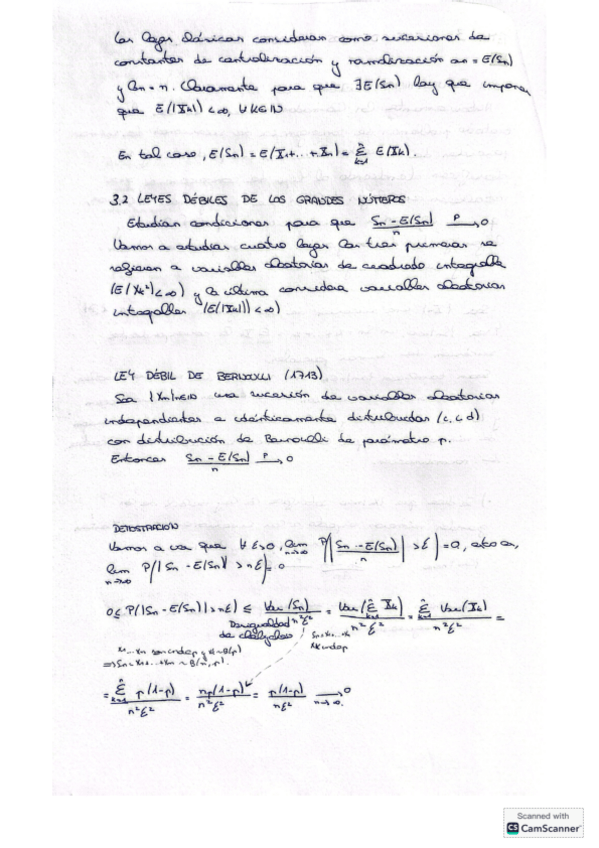 Las leyes clásicas consideran como sucesiones de
constantes de centralización y normalización an = E(Sn)
y bn = n. Claramente para que ∃E(Sn) hay que imponer
que E(|Xk|) < ∞, ∀ k∈ℕ
En tal caso, E(Sn) = E(X1+...+Xn) = Σ_{k=1}^{n} E(Xk).
3.2 LEYES DÉBILES DE LOS GRANDES NÚMEROS
Estudian condiciones para que (Sn - E(Sn))/n →^P 0
Vamos a estudiar cuatro leyes. Las tres primeras se
refieren a variables aleatorias de cuadrado integrable
(E(Xk²) < ∞) y la última considera variables aleatorias
integrables (E(|Xk|) < ∞)
LEY DÉBIL DE BERNOULLI (1713)
Sea {Xn}n∈ℕ una sucesión de variables aleatorias
independientes e idénticamente distribuidas (i.i.d)
con distribución de Bernoulli de parámetro p.
Entonces (Sn - E(Sn))/n →^P 0
DEMOSTRACION
Vamos a ver que ∀ ε>0, lim_{n→∞} P(|(Sn - E(Sn))/n| > ε) = 0, esto es,
lim_{n→∞} P(|Sn - E(Sn)| > nε) = 0
0 ≤ P(|Sn - E(Sn)| > nε) ≤ Var(Sn)/(n²ε²) = Var(Σ_{k=1}^{n} Xk)/(n²ε²) = Σ_{k=1}^{n} Var(Xk)/(n²ε²) =
Desigualdad
de Chebyshev
Sn=X1+...+Xn
Xk indep
X1...Xn son indep y ~B(p)
⇒ Sn=X1+...+Xn ~ B(n,p).
= Σ_{k=1}^{n} p(1-p)/(n²ε²) = np(1-p)/(n²ε²) = p(1-p)/(nε²) →_{n→∞} 0
Scanned with
CS CamScanner